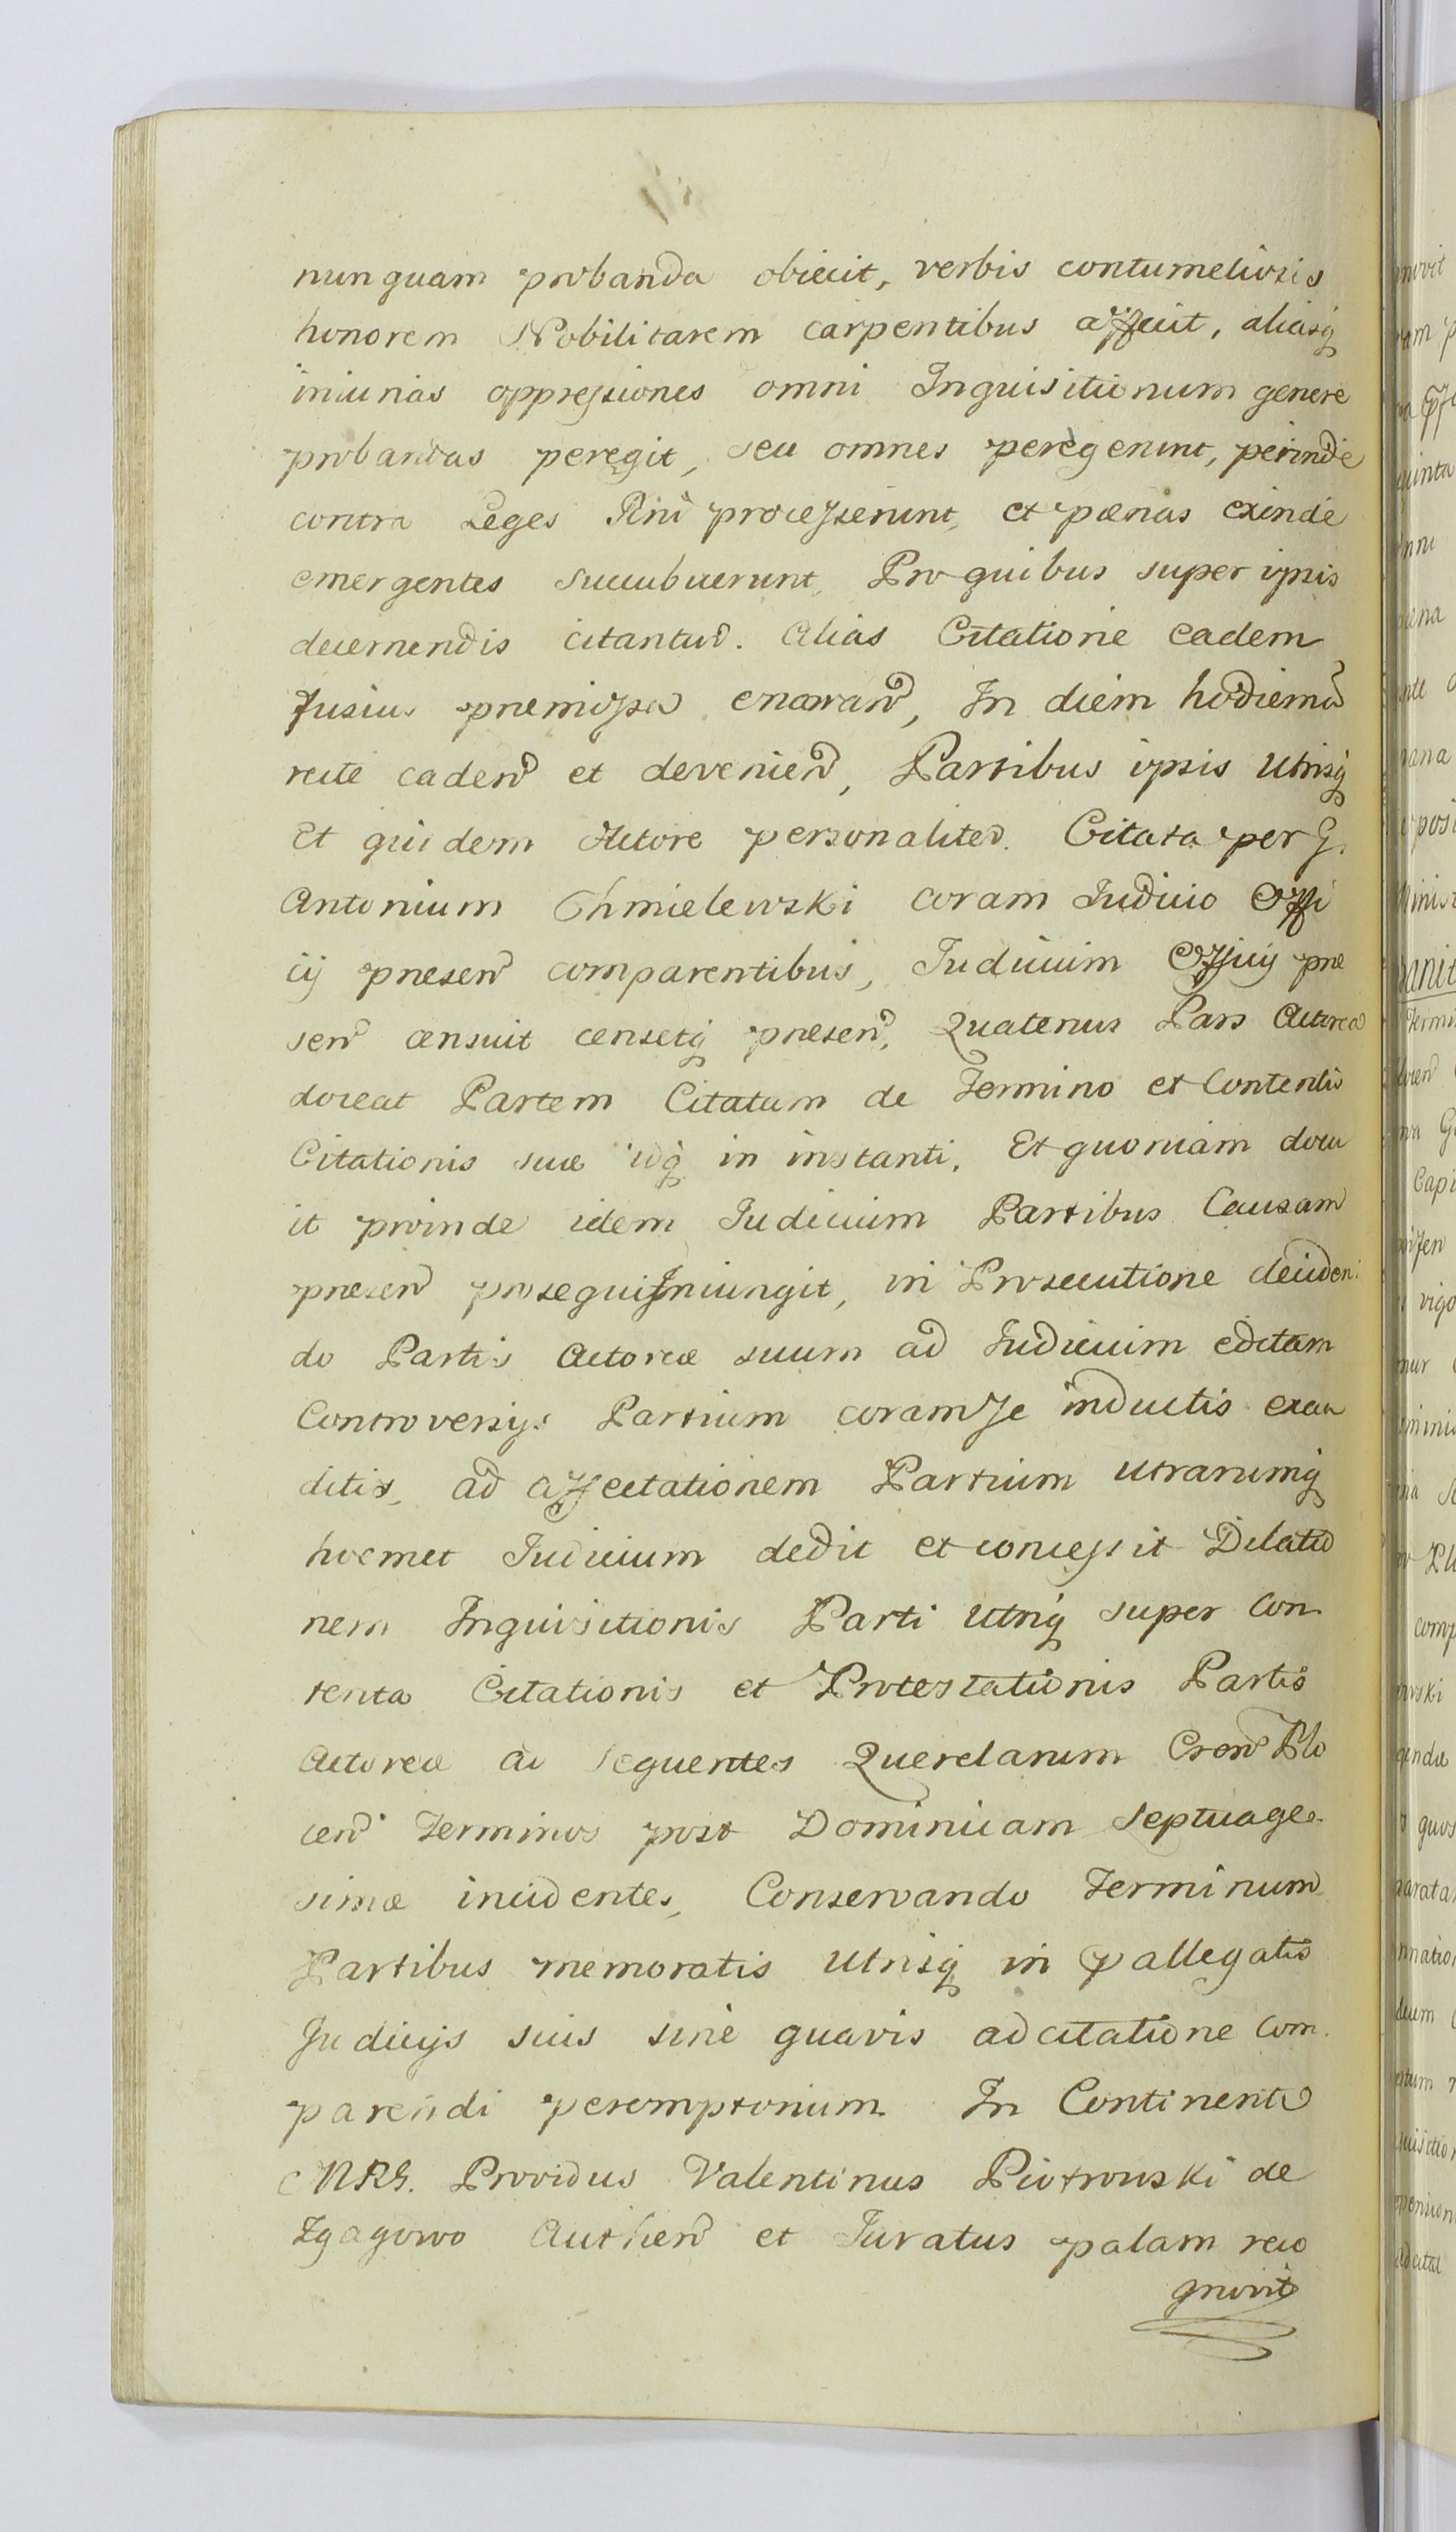 nunquam probanda obiecit, verbis contumeliosis
honorem Nobilitarem carpentibus affecit, aliasq
iniurias oppressiones omni Inquisitionum genere
probandas peregit, seu omnes peregerunt, perinde
contra Leges Rni processerunt, et pœnas exinde
emergentes succubuerunt, Pro quibus super ipsis
decernendis citantur. Alias Citatione eadem
fusius premissa enarran, In diem hodierna
recte caden et devenien, Partibus ipsis Utrisq
Et quidem Actore personaliter. Citata per G.
Antonium Chmielewski coram Iudicio Offi
cij presen comparentibus, Iudicium Officij pre
sen censuit censetq presen, Quatenus Pars Actorea
doceat Partem Citatam de Termino et Contentis
Citationis suæ idq in instanti. Et quoniam docu
it proinde idem Iudicium Partibus Causam
presen prosequi Iniungit, in Prosecutione deciden
do Partis Actoreæ suum ad Iudicium editam
Controversijs Partium coram se inductis exau
ditis, ad affectationem Partium Utrarumq
hocmet Iudicium dedit et concessit Dilatio
nem Inquisitionis Parti Utriq super Con
tenta Citationis et Protestationis Partis
Actoreæ ad sequentes Querelarum Cren Plo
cen Terminos post Dominicam Septuage
simæ incidentes, Conservando Terminum
Partibus memoratis Utrisq in pallegatis
Judicijs suis sine quavis adcitatione Com
parendi peremptorium. In Continenti
MRG. Providus Valentinus Piotrowski de
Zgagowo Authen et Iuratus palam reco
gnovit